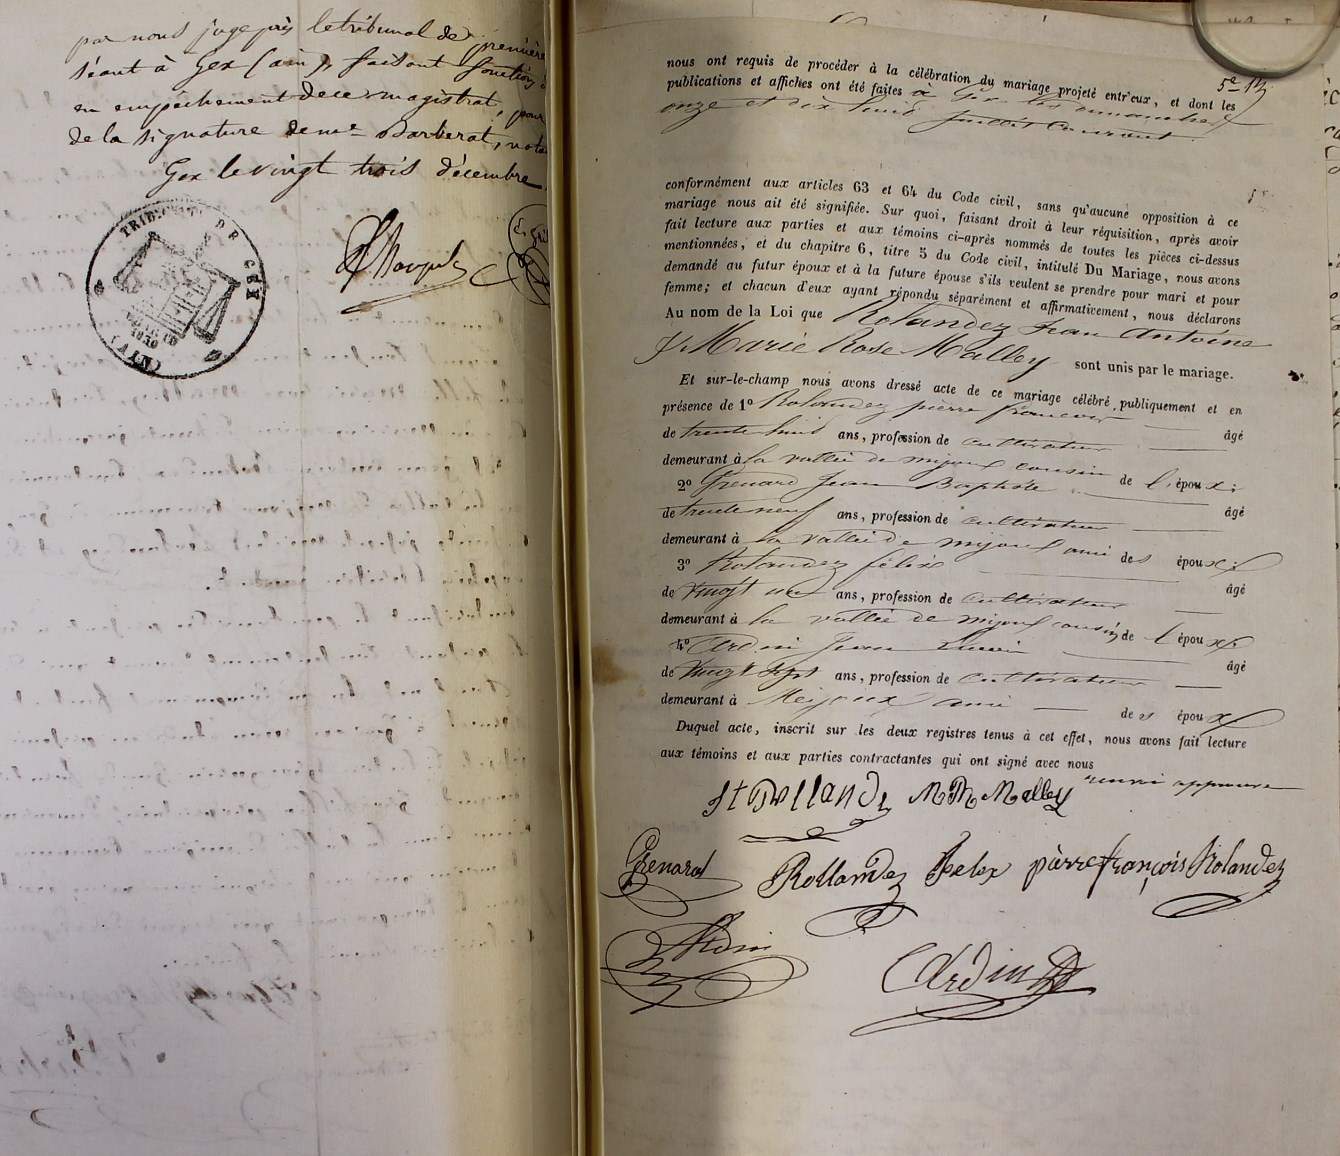 par nous juge près le tribunal de première
séant à Gex (ain), faisant fonctions
en empêchement de ce magistrat, pour
de la signature de me Barberat, nota
Gex le vingt trois décembre
TRIBUNAL DE GEX
(AIN)
5e 13
nous ont requis de procéder à la célébration du mariage projeté entr'eux, et dont les
publications et affiches ont été faites à Gex les dimanches
onze et dix huit juillet courant
conformément aux articles 63 et 64 du Code civil, sans qu'aucune opposition à ce
mariage nous ait été signifiée. Sur quoi, faisant droit à leur réquisition, après avoir
fait lecture aux parties et aux témoins ci-après nommés de toutes les pièces ci-dessus
mentionnées, et du chapitre 6, titre 5 du Code civil, intitulé Du Mariage, nous avons
demandé au futur époux et à la future épouse s'ils veulent se prendre pour mari et pour
femme; et chacun d'eux ayant répondu séparément et affirmativement, nous déclarons
Au nom de la Loi que Rolandez Jean Antoine
& Marie Rose Malley sont unis par le mariage.
Et sur-le-champ nous avons dressé acte de ce mariage célébré publiquement et en
présence de 1º Rolandez pierre françois âgé
de trente huit ans, profession de cultivateur
demeurant à la vallée de mijoux cousin de l'époux;
2º Grenard Jean Baptiste âgé
de trente neuf ans, profession de cultivateur
demeurant à la vallée de mijoux ami des époux;
3º Rolandez félix âgé
de vingt un ans, profession de cultivateur
demeurant à la vallée de mijoux cousin de l'époux
4º Ardin Jean âgé
de vingt sept ans, profession de cultivateur
demeurant à Mijoux ami des époux
Duquel acte, inscrit sur les deux registres tenus à cet effet, nous avons fait lecture
aux témoins et aux parties contractantes qui ont signé avec nous
MR Malley
Grenard Rollandez Felex pièrre françois Rolandez
Ardin Ardin